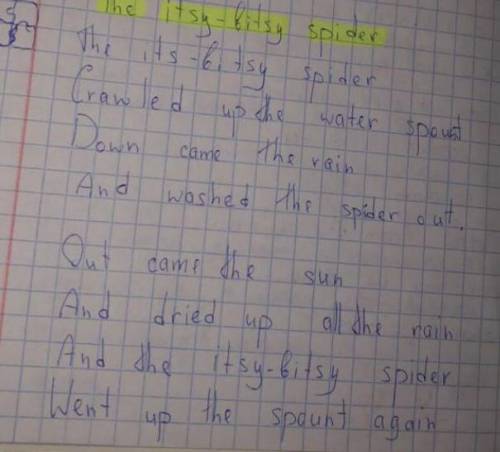 The itsy-bitsy spider
The its-bitsy spider
Crawled up the water spount
Down came the rain
And washed the spider out.
Out came the sun
And dried up all the rain
And the itsy-bitsy spider
Went up the spount again